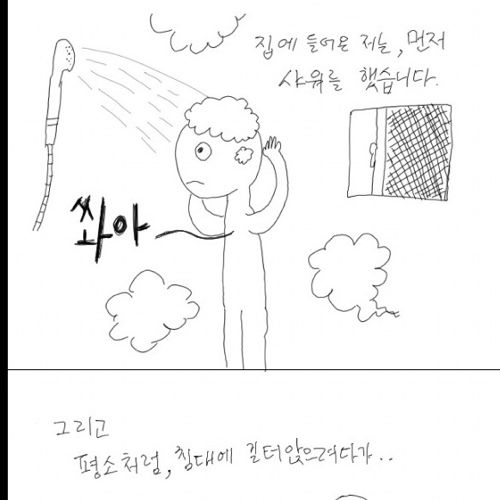 집에 들어온 저는, 먼저
샤워를 했습니다.
쏴아
그리고
평소처럼, 침대에 걸터앉으려다가..